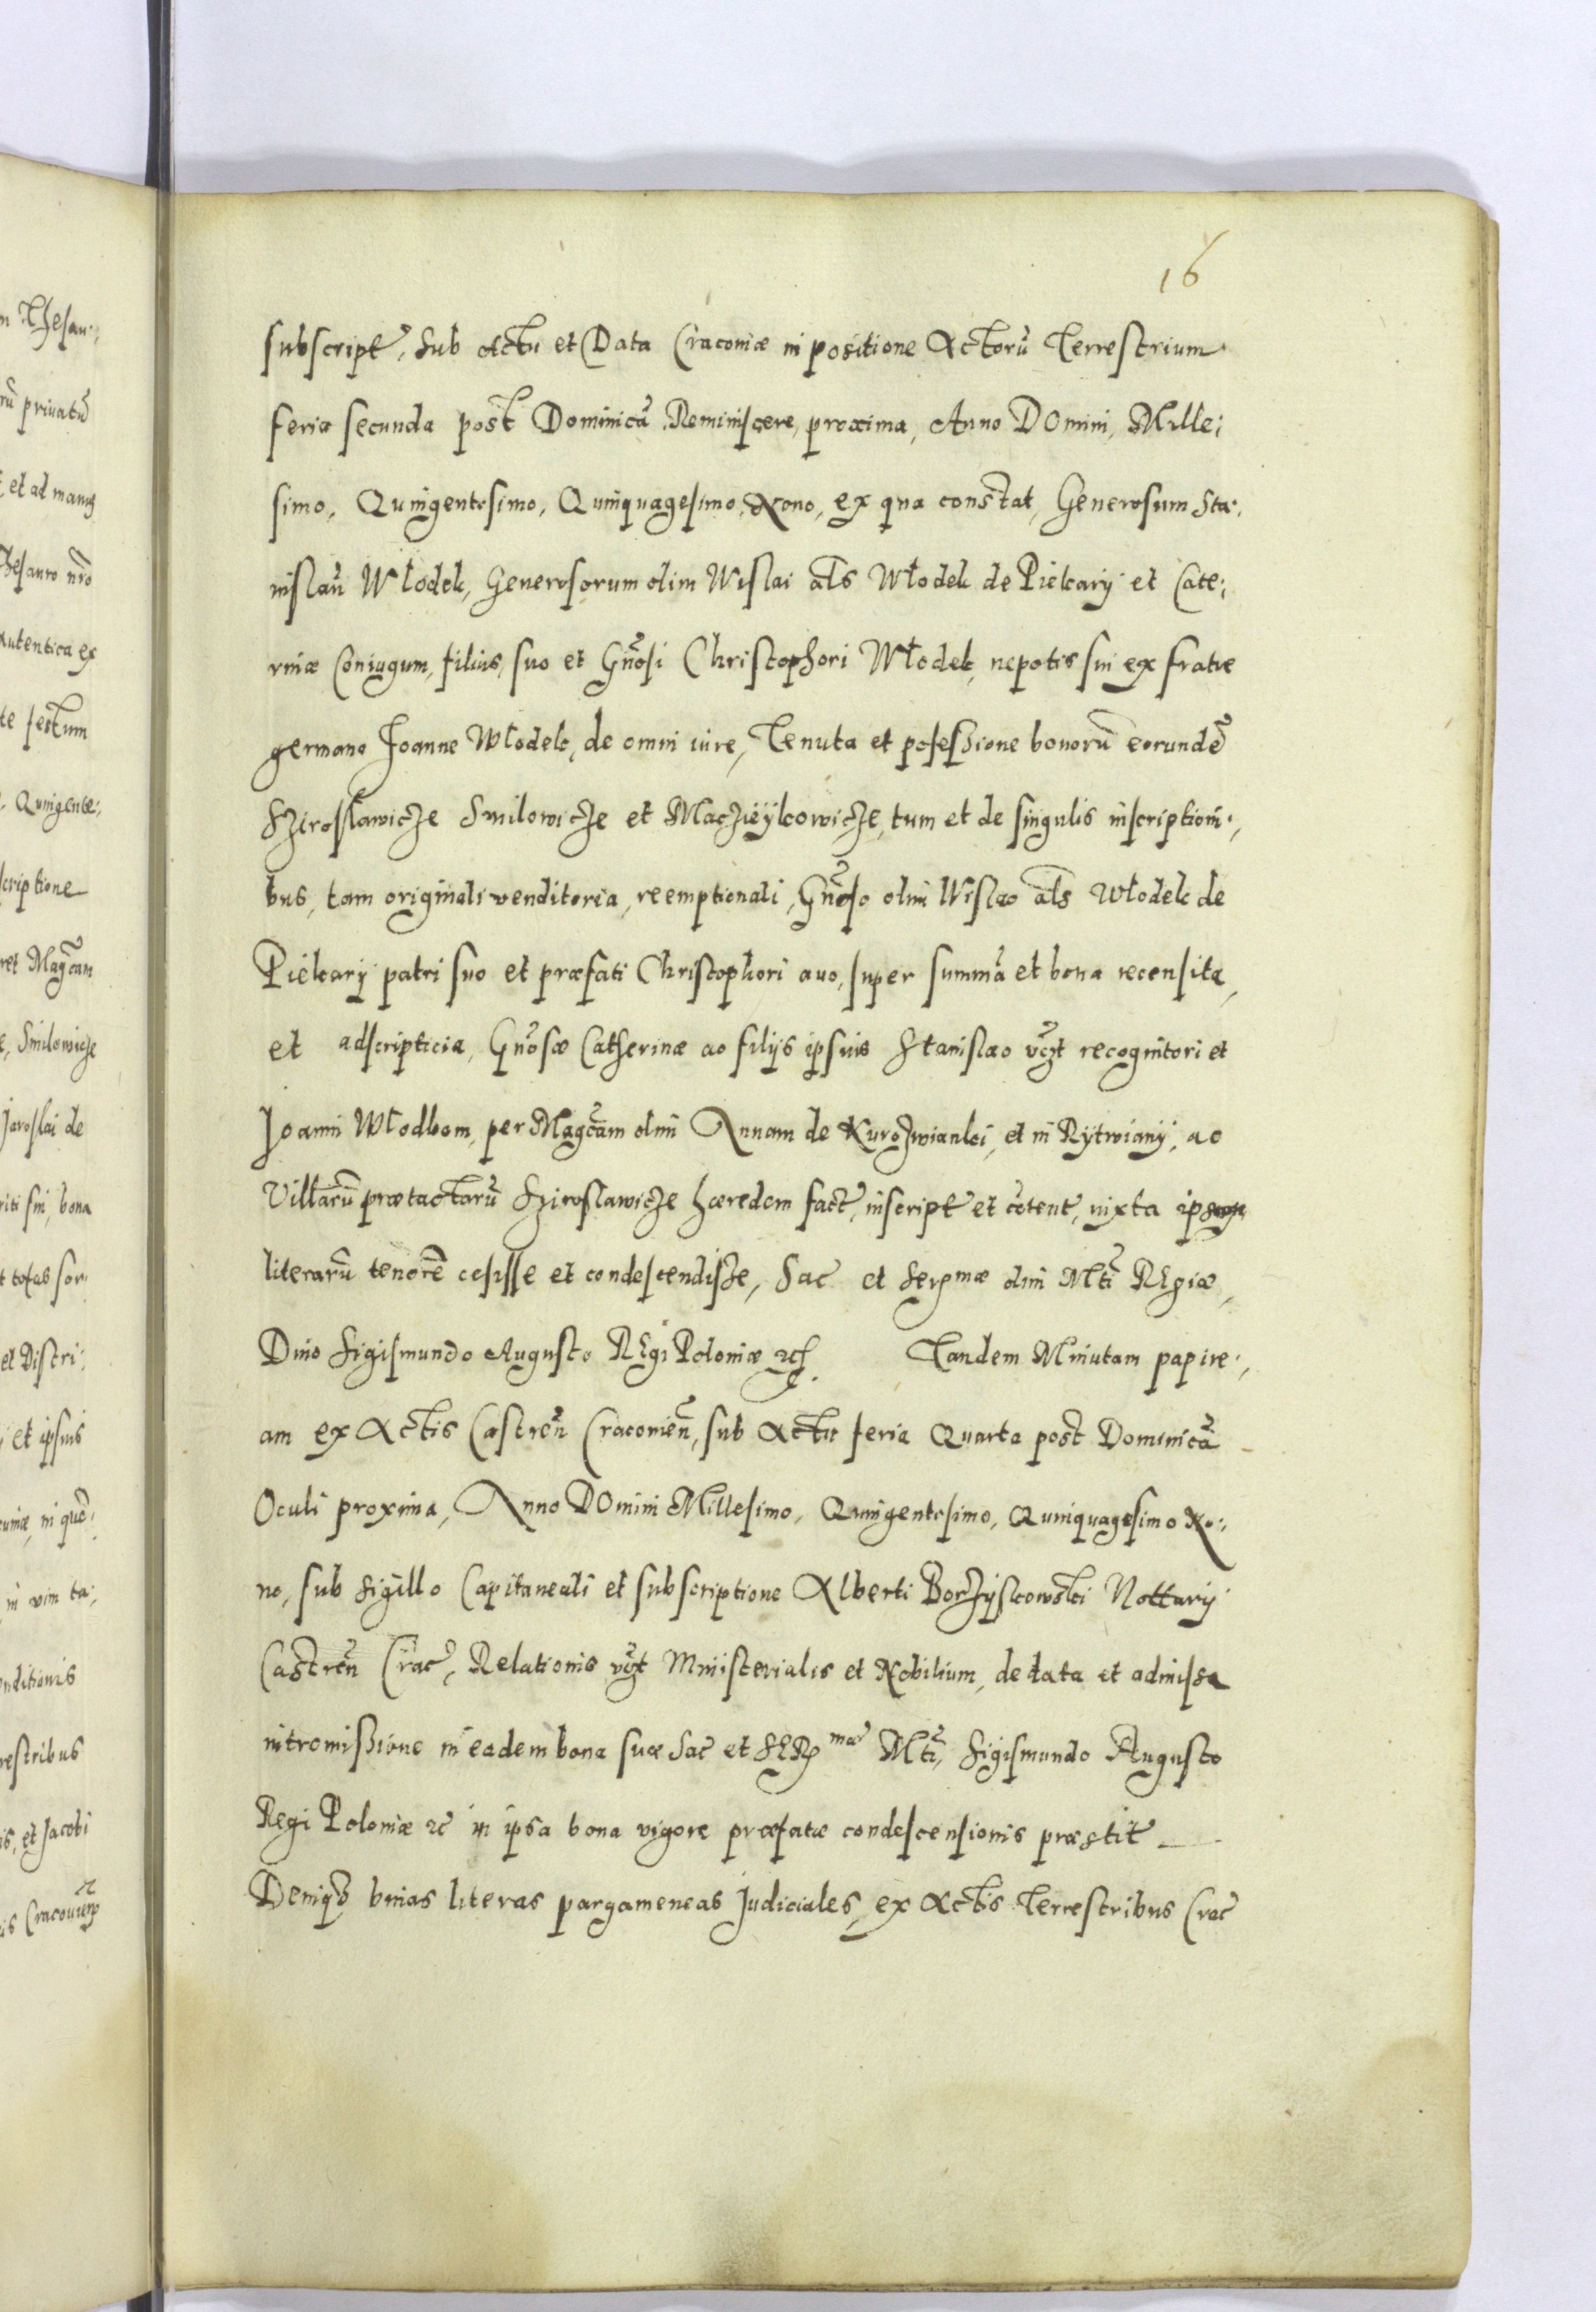 16
subscript̃, sub Actu et Data Cracoviæ in positione Actorũ Terrestrium
feria secunda post Dominicã Reminiscere, proxima, Anno DOmini, Mille:
simo, Quingentesimo, Quinquagesimo, Nono, ex qua constat, Generosum Sta:
nislaũ Włodek, Generosorum olim Wislai als Włodek de Piekary et Cate:
rinæ Coniugum, filius, suo et Gñosi Christophori Włodek, nepotis sui ex fratre
germano Joanne Włodek, de omni iure, Tenuta et possessione bonorũ eorundẽ
Sziroslawicze Smilowicze et Maczieykowicze, tum et de singulis inscriptioni:
bus, tam originali venditoria, reemptionali, Gñoso olim Wislao als Włodek de
Piekary patri suo et præfati Christophori auo, super summã et bona recensita,
et adscripticia, Gñosæ Catherinæ ac filijs ipsius Stanislao vt recognitori et
Joanni Włodkom, per Magcam olim Annam de Kurozwianki, et in Rytwiany, ac
Villarũ prætactarũ Sziroslawicze hæredem fact̃, inscript̃ et cõtent̃, iuxta
literarũ tenorẽ cesisse et condescendisse, Sac̃ et Serᵐæ olim Mti REgiæ,
Dno Sigismundo Augusto REgi Poloniæ etc. Tandem Minutam papire:
am ex Actis Castreñ Cracovieñ, sub Actu feria Quarta post Dominicã
Oculi proxima, Anno DOmini Millesimo, Quingentesimo, Quinquagesimo No:
no, sub sigillo Capitaneali et subscriptione Alberti Borzyskowski Nottarij
Castreñ Crac̃, Relationis vt Ministerialis et Nobilium, de data et admissa
intromissione in eadem bona suæ Sac̃ et SERᵐæ Mti, Sigismundo Augusto
Regi Poloniæ etc in ipsa bona vigore præfatæ condescensionis præstit̃
Deniqꝫ binas literas pargameneas Judiciales, ex Actis Terrestribus Crac̃